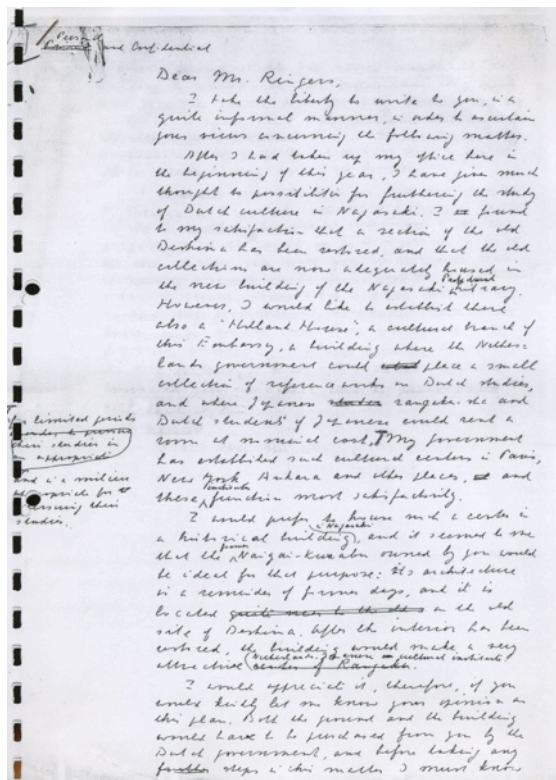 Personal
and Confidential
Dear Mr. Ringers,
I take the liberty to write to you, in a
quite informal manner, in order to ascertain
your views concerning the following matter.
After I had taken up my office here in
the beginning of this year, I have given much
thought to possibilities for furthering the study
of Dutch culture in Nagasaki. I found
to my satisfaction that a section of the old
Deshima has been restored, and that the old
collections are now adequately housed in
the new building of the Nagasaki Prefectural Library.
However, I would like to establish there
also a "Holland House", a cultural branch of
this Embassy, a building where the Nether-
lands government could place a small
collection of reference works on Dutch studies,
and where Japanese rangakusha and
Dutch students of Japanese could rent a
room at nominal cost, My government
for limited periods
their studies in
an appropriate
and in a milieu
appropriate for
pursuing their
studies.
has established such cultural centers in Paris,
New York Ankara and other places, and
these institutes function most satisfactorily.
I would prefer to house such a center in
a historical building in Nagasaki, and it seemed to me
that the former Naigai-kurabu owned by you would
be ideal for that purpose: its architecture
is a reminder of former days, and it is
located quite near to the on the old
site of Deshima. After the interior has been
restored, the building would make a very
attractive Netherlands Japanese cultural institute
center of Rangaku.
I would appreciate it, therefore, if you
would kindly let me know your opinion on
this plan. Both the ground and the building
would have to be purchased from you by the
Dutch government, and before taking any
further steps in this matter I must know